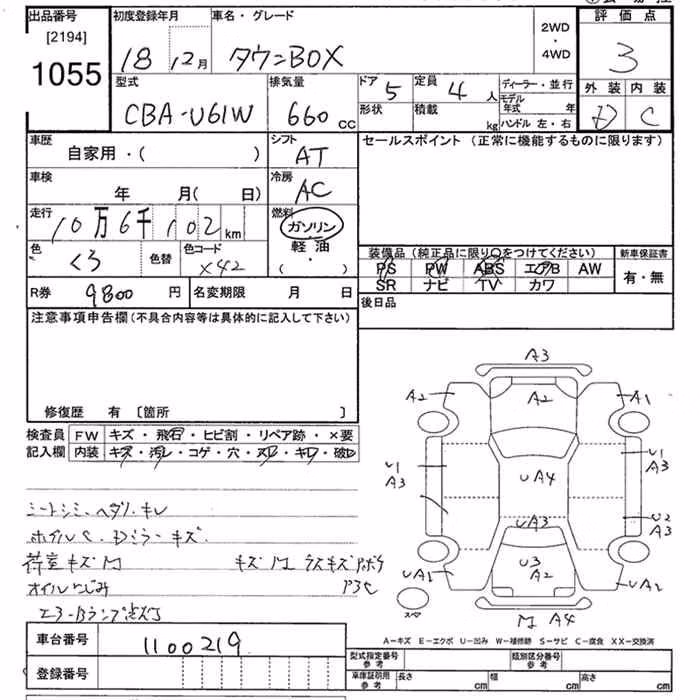 出品番号 初度登録年月 車名・グレード 2WD・4WD 評価点
[2194]
1055 18 12月 タウンBOX 3
型式 排気量 ドア 5 定員 4人 ディーラー・並行 外装 内装
CBA-U61W 660cc 形状 積載 kg モデル年式 年 D C
ハンドル 左・右
車歴 自家用・( ) シフト AT セールスポイント (正常に機能するものに限ります)
車検 年 月( 日) 冷房 AC
走行 10万6千102km 燃料 ガソリン
軽油
・
( )
色 くろ 色替 色コード X42 装備品 (純正品に限り○をつけてください) 新車保証書
PS PW ABS エアB AW 有・無
SR ナビ TV カワ
R券 9800円 名変期限 月 日 後日品
注意事項申告欄(不具合内容等は具体的に記入して下さい)
修復歴 有 [箇所 ]
検査員記入欄 FW キズ・飛石・ヒビ割・リペア跡・×要
内装 キズ・汚レ・コゲ・穴・スレ・キレ・破レ
シートシミ、ヘタリ・キレ
ホイルC、Dミラーキズ
荷室キズM キズM
オイルにじみ
エアーBランプ点灯
A3
A2 A2 A1
U1 A3 UA4 U1 A3
UA3 U2 A3
UA1 U3 A2 UA2
M A4
A−キズ E−エクボ U−凹み W−補修跡 S−サビ C−腐食 XX−交換済
車台番号 1100219
登録番号
型式指定番号 参考 類別区分番号 参考
車庫証明用 参考 長さ cm 幅 cm 高さ cm